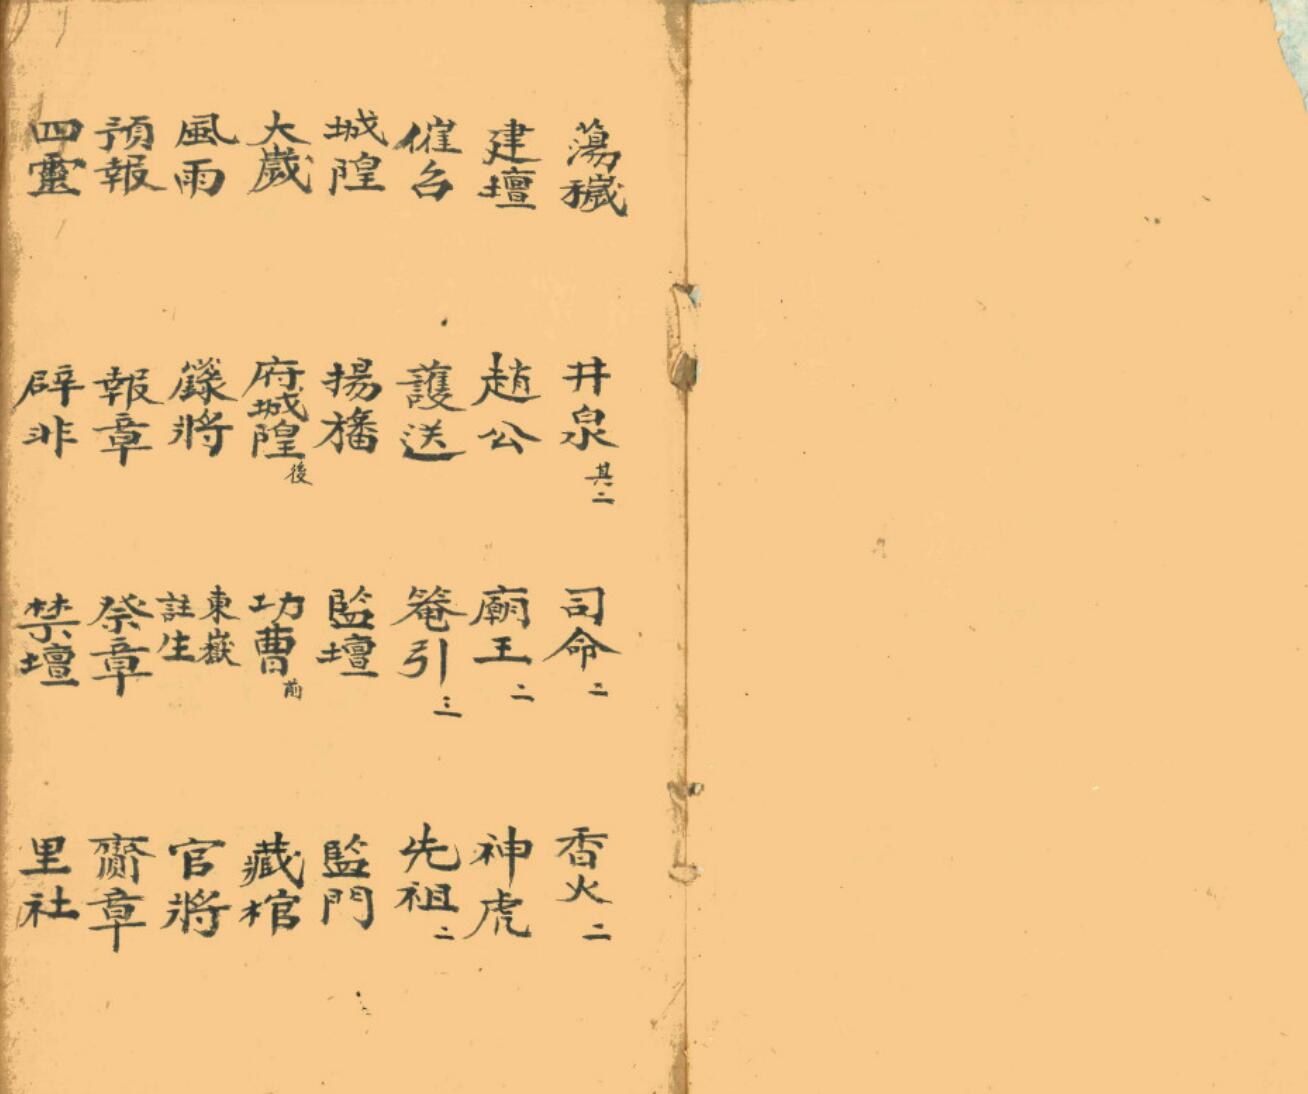 蕩穢 井泉其二 司命二 香火二
建壇 趙公 廟王二 神虎
催召 護送 引三 先祖二
城隍 揚旛 監壇 監門
大歲 府城隍後 功曹前 藏棺
風雨 籙將 東嶽註生 官將
預報 報章 祭章 齎章
四靈 辟非 禁壇 里社